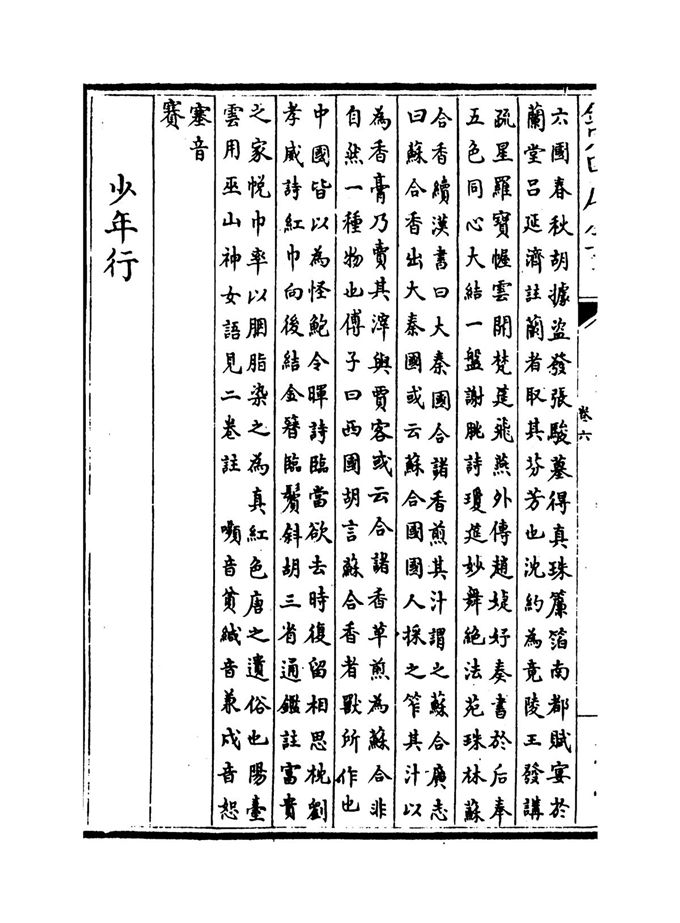 六國春秋胡據盜發張駿墓得真珠簾箔南都賦宴於
蘭堂呂延濟註蘭者取其芬芳也沈約為竟陵王發講
疏星羅寶幄雲開梵筵飛燕外傳趙婕妤奏書於后奉
五色同心大結一盤謝朓詩瓊筵妙舞絶法苑珠林蘇
合香續漢書曰大秦國合諸香煎其汁謂之蘇合廣志
曰蘇合香出大秦國或云蘇合國國人採之笮其汁以
為香膏乃賣其滓與賈客或云合諸香草煎為蘇合非
自然一種物也傅子曰西國胡言蘇合香者獸所作也
中國皆以為怪鮑令暉詩臨當欲去時復留相思枕劉
孝威詩紅巾向後結金簪臨鬢斜胡三省通鑑註富貴
之家帨巾率以胭脂染之為真紅色唐之遺俗也陽臺
雲用巫山神女語見二巻註 嚬音貧緘音兼戍音恕
塞音
賽
少年行
卷六